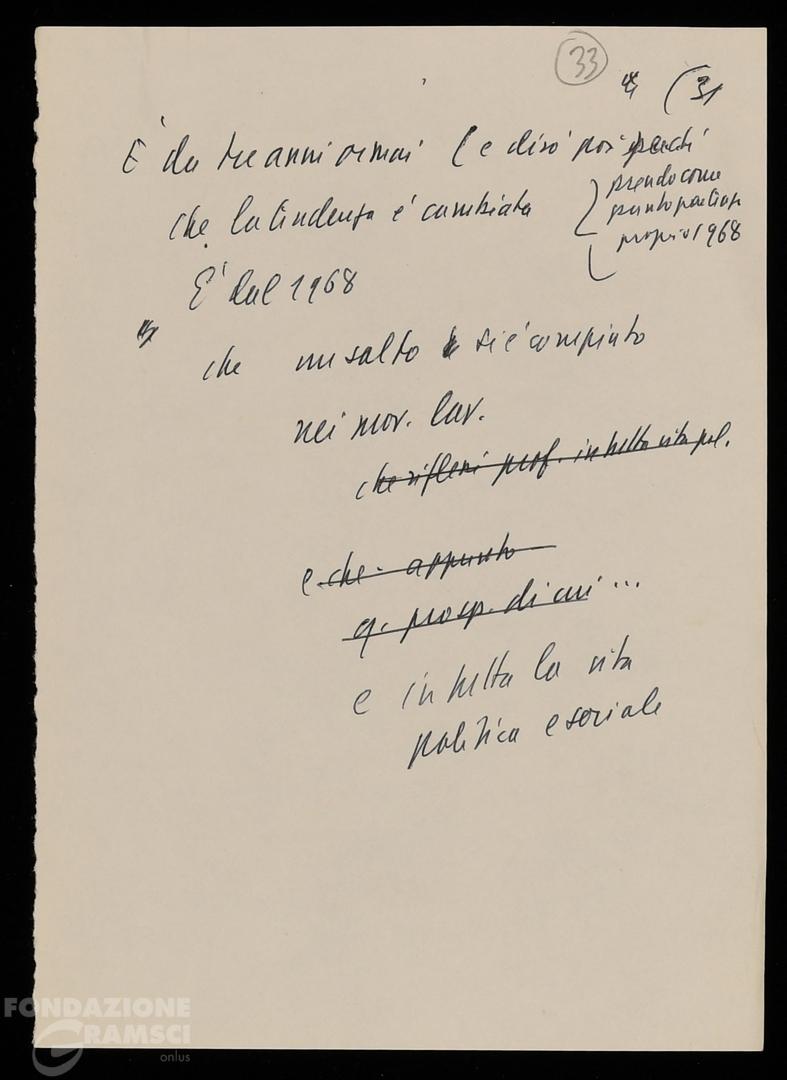 33
(31
E' da tre anni ormai (e dirò poi perché
prendo come
punto partenza
proprio 1968
che la tendenza è cambiata
E' dal 1968
che un salto si è compiuto
nei mov. lav.
che riflessi prof. in tutta vita pol.
e che appunto
q. prosp. di cui ...
e in tutta la vita
politica e sociale
FONDAZIONE
GRAMSCI
onlus